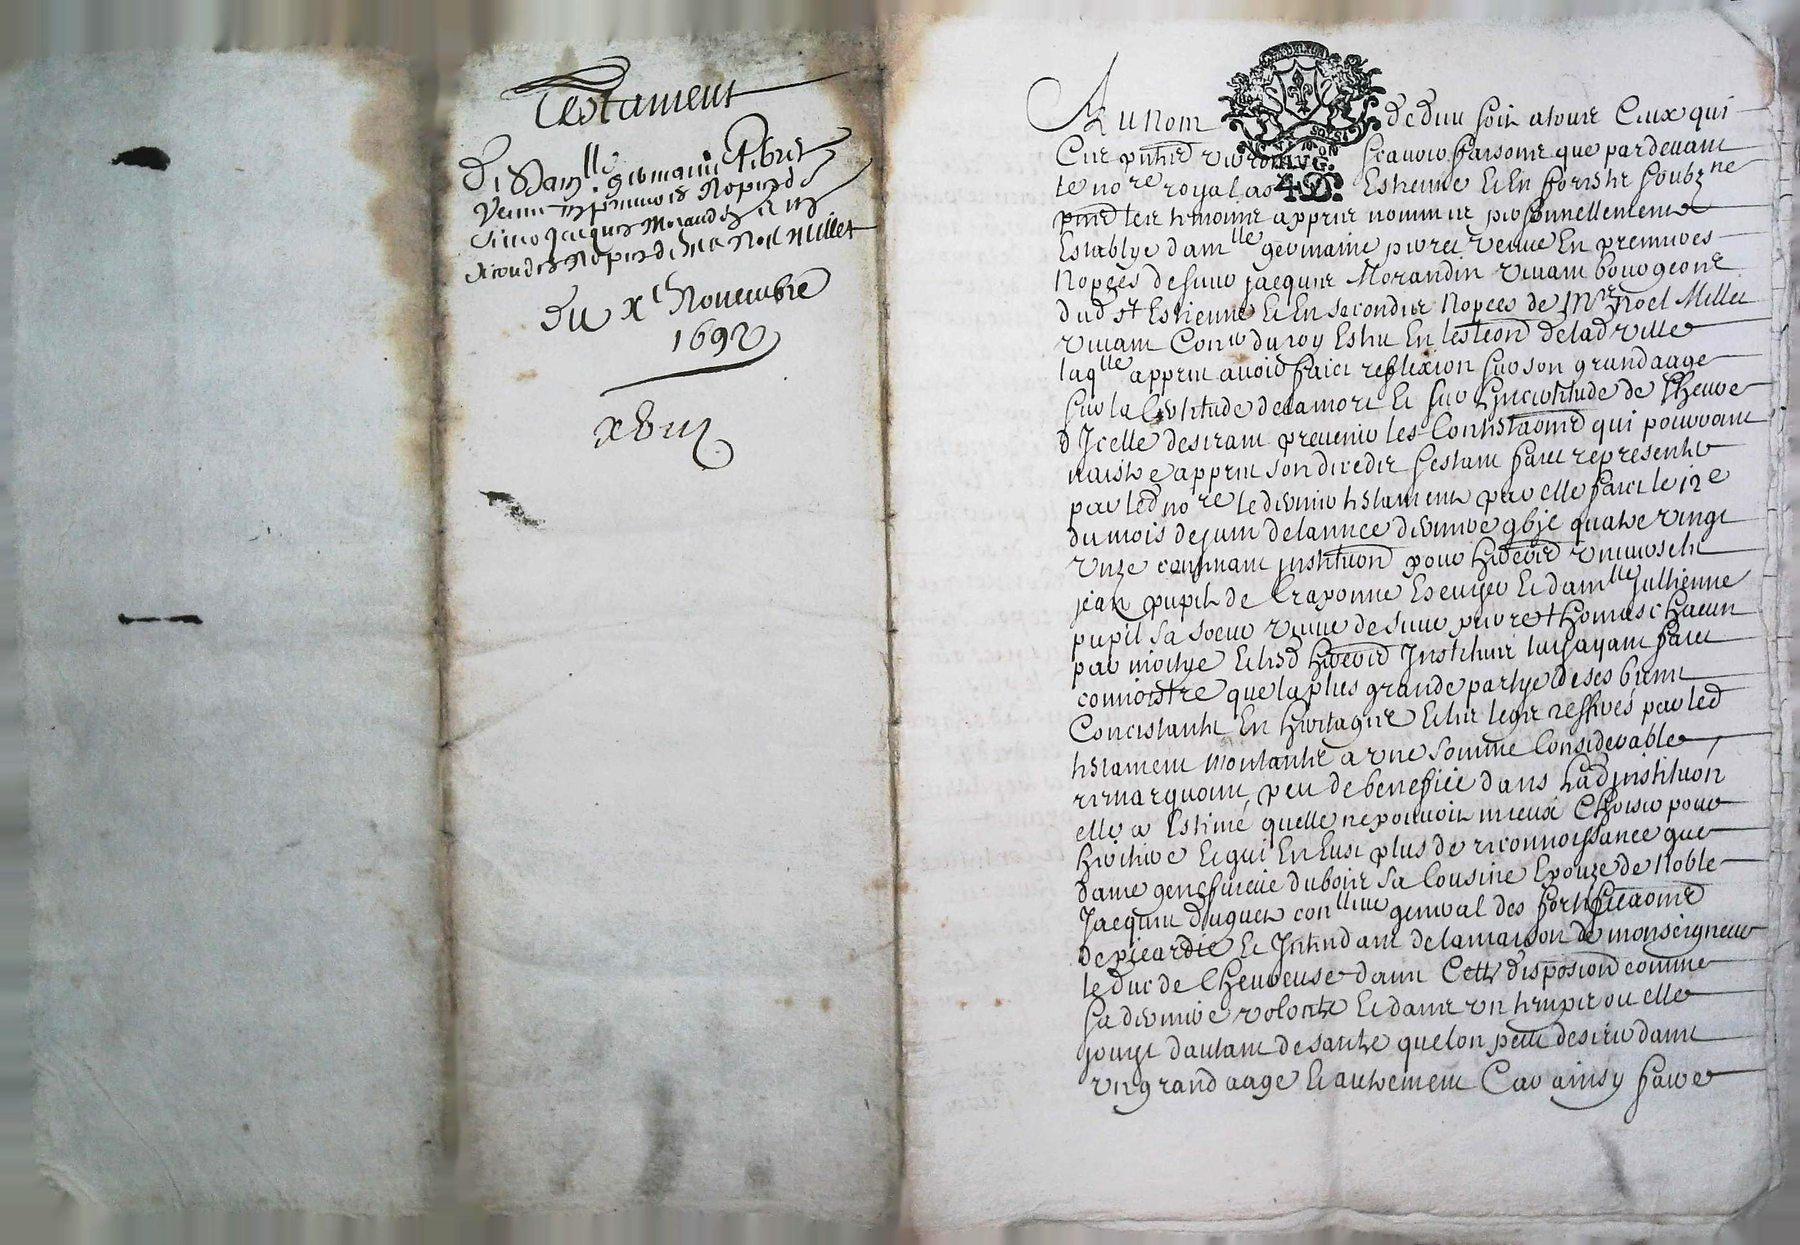 Testament
De Dam.lle germaine Pivret
Veuve en premieres Nopces de
sieur Jacques Morandin & en
secondes Nopces de Me Noel Millet
Du Xe Novembre
1692
Au Nom de dieu soit a tous Ceux qui
Ces pntes verront scavoir faisons que pardevant
le nore royal a St Estienne Et En forestz soubzne
pnt les tesmoins appres nommes personnellement
Establye damlle germaine pivret veuve En premieres
Nopces de sieur jacques Morandin vivant bourgeois
dud st Estienne Et En secondes Nopces de Mre Noel Millet
vivant Coner du roy Esleu En lestion de lad ville
laqlle appres avoir faict reflexion sur son grand aage
sur la Certitude de la mort Et sur Lincertitude de Lheure
d Icelle desirant prevenir les Contestaons qui pouroient
naistre appres son deceds sestant faict representer
par led nore le dernier testament par elle faict le 12e
du mois de juin de lannee derniere gbjc quatre vingt
unze contenant institution pour heritiers universels
jean pupil de Craponne Escuyer Et damlle Jullienne
pupil sa soeur veuve de sieur pierre thomas chacun
par moitye Et lesd heritiers Instituez luy ayant faict
connoistre que la plus grande partye de ses biens
Concistante En heritages Et les legs reservés par led
testament montantz a une somme Considerable
remarquoint peu de benefice dans lad institution
elle a Estimé quelle ne pouvoit mieux Choisir pour
heritiere Et qui En Eust plus de reconnoissance que
dame genefvieve dubois sa Cousine Epouze de Noble
Jacques duguet conlleur general des fortificaons
de picardie Et Intendant de la maison de monseigneur
le duc de Cheuvreuse dans Cette disposion comme
sa derniere volonte Et dans un temps ou elle
jouyt dautant de sante que lon peut desirer dans
un grand aage Et autrement Car ainsy faire